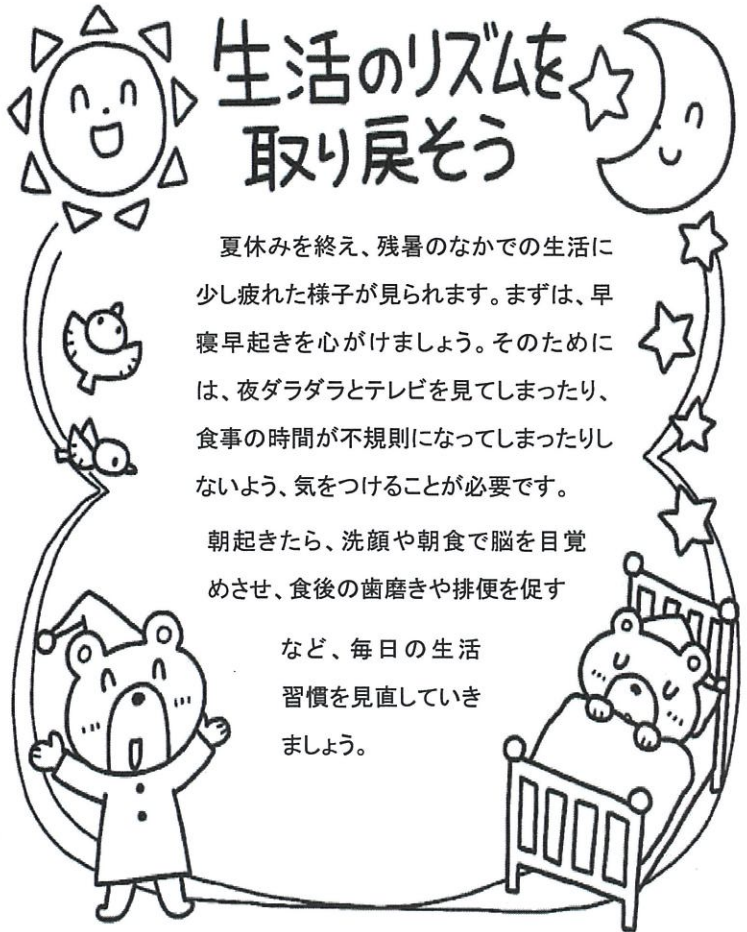 生活のリズムを
取り戻そう
夏休みを終え、残暑のなかでの生活に
少し疲れた様子が見られます。まずは、早
寝早起きを心がけましょう。そのために
は、夜ダラダラとテレビを見てしまったり、
食事の時間が不規則になってしまったりし
ないよう、気をつけることが必要です。
朝起きたら、洗顔や朝食で脳を目覚
めさせ、食後の歯磨きや排便を促す
など、毎日の生活
習慣を見直していき
ましょう。